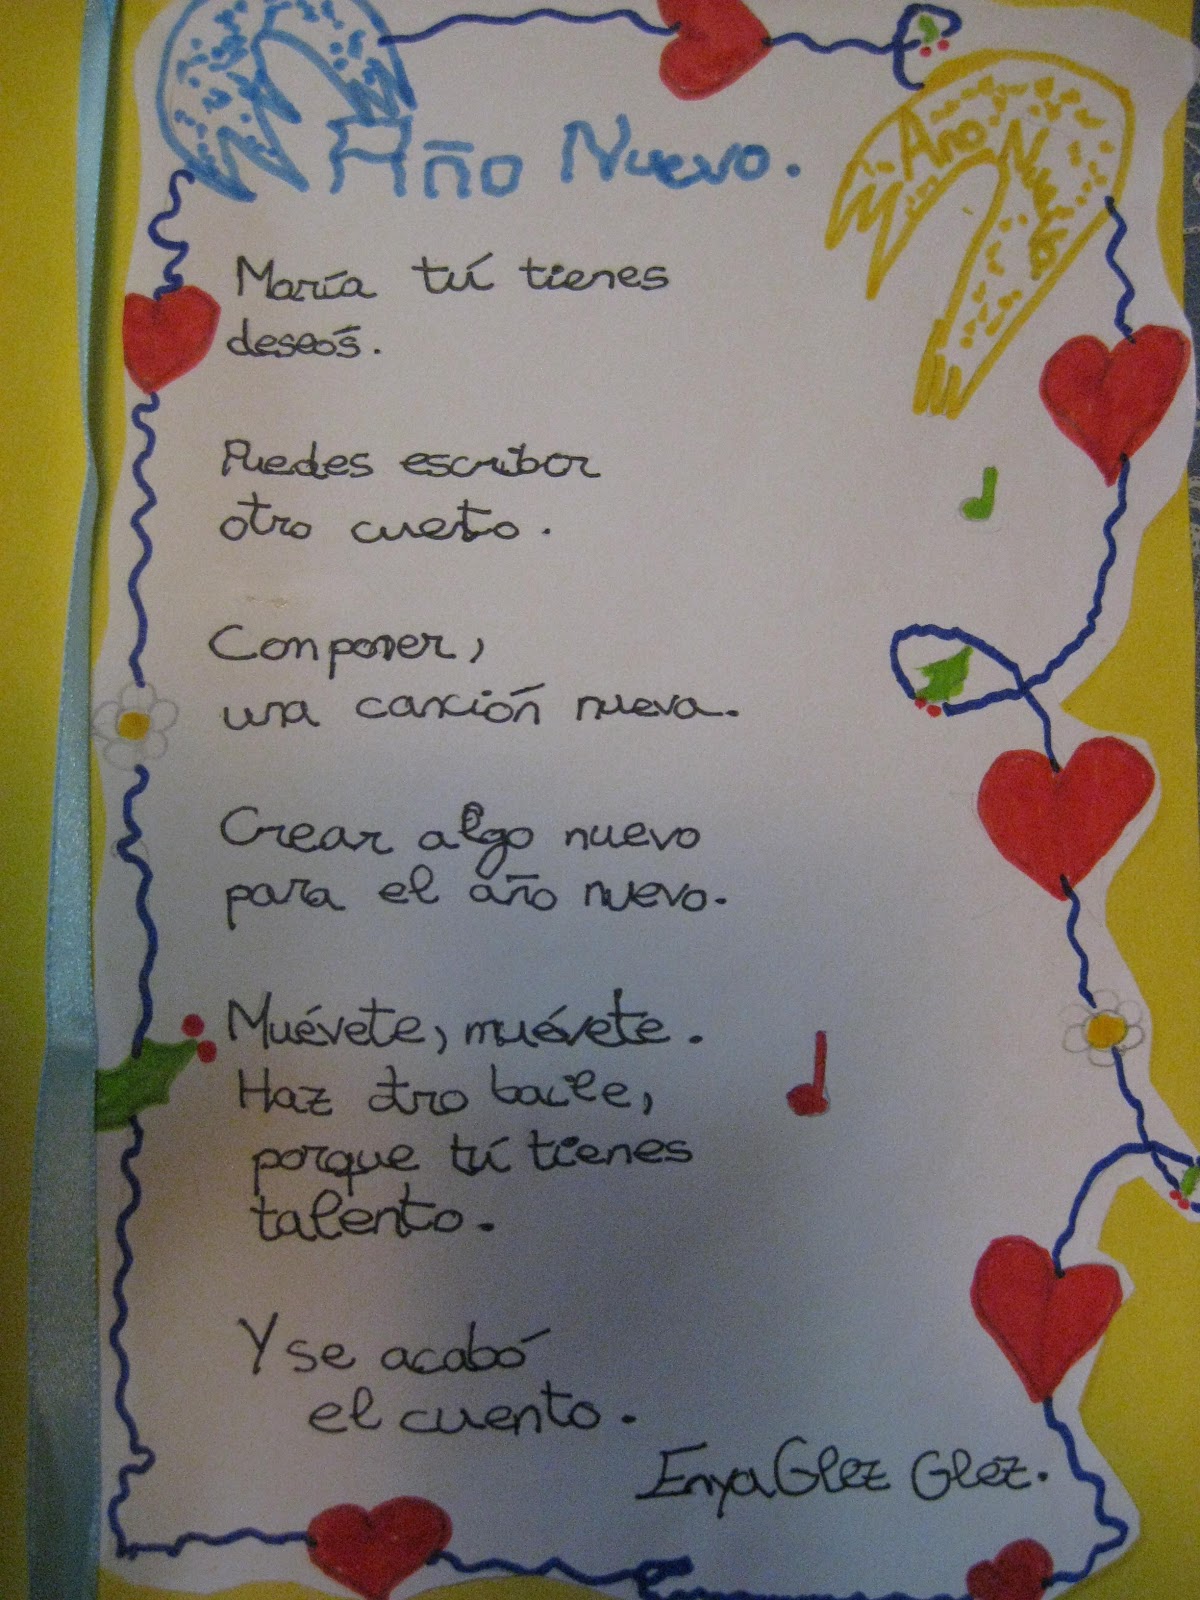 Año Nuevo.
Año Nuevo
María tú tienes
deseós.
Puedes escribor
otro cueto.
Componer,
una canción nueva.
Crear algo nuevo
para el año nuevo.
Muévete, muévete.
Haz otro baile,
porque tú tienes
talento.
Y se acabó
el cuento.
Enya Glez Glez.